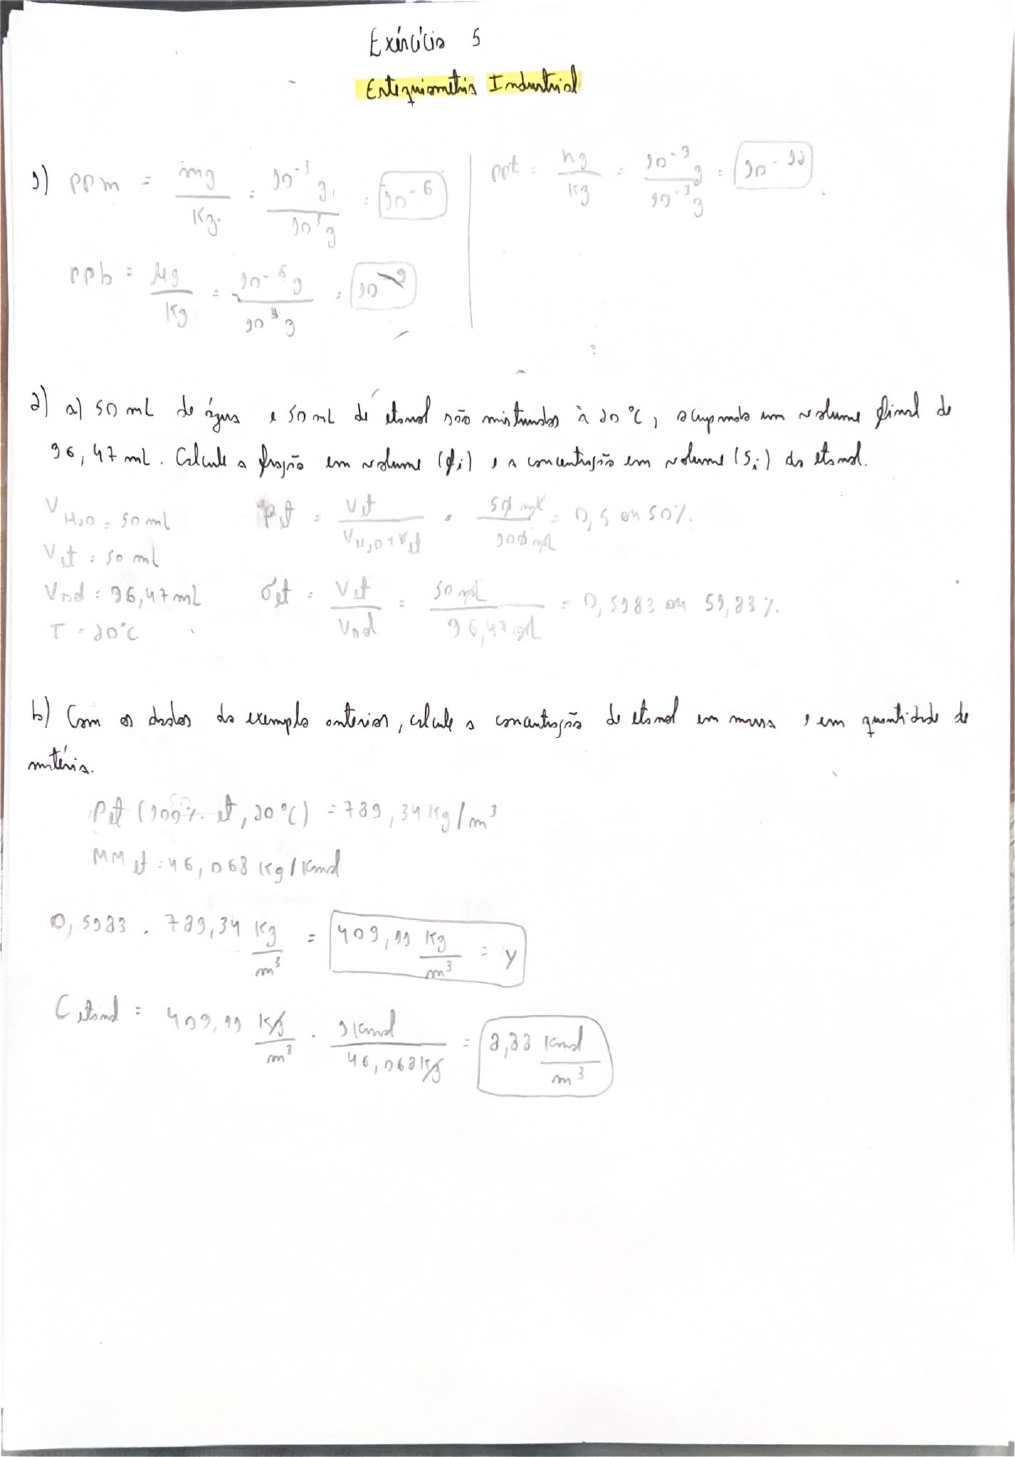 Exercício 5
Estequiometria Industrial
1) ppm = mg/Kg = 10^-3 g/10^3 g = 10^-6
ppt = ng/Kg = 10^-9 g/10^3 g = 10^-12
ppb = µg/Kg = 10^-6 g/10^3 g = 10^-9
2) a) 50 mL de água e 50 mL de etanol são misturados à 20 °C, ocupando um volume final de
96,47 mL. Calcule a fração em volume (φi) e a concentração em volume (σi) do etanol.
V H2O = 50 ml
φet = Vet/(VH2O + Vet) = 50 mL/100 mL = 0,5 ou 50%.
Vet = 50 ml
Vsol = 96,47 mL
σet = Vet/Vsol = 50 mL/96,47 mL = 0,5183 ou 51,83%.
T = 20°C
b) Com os dados do exemplo anterior, calcule a concentração de etanol em massa e em quantidade de
matéria.
ρet (100% et, 20°C) = 789,34 Kg/m³
MM et = 46,068 Kg/Kmol
0,5183 . 789,34 Kg/m³ = 409,11 Kg/m³ = γ
C etanol = 409,11 Kg/m³ . 1 Kmol/46,068 Kg = 8,88 Kmol/m³